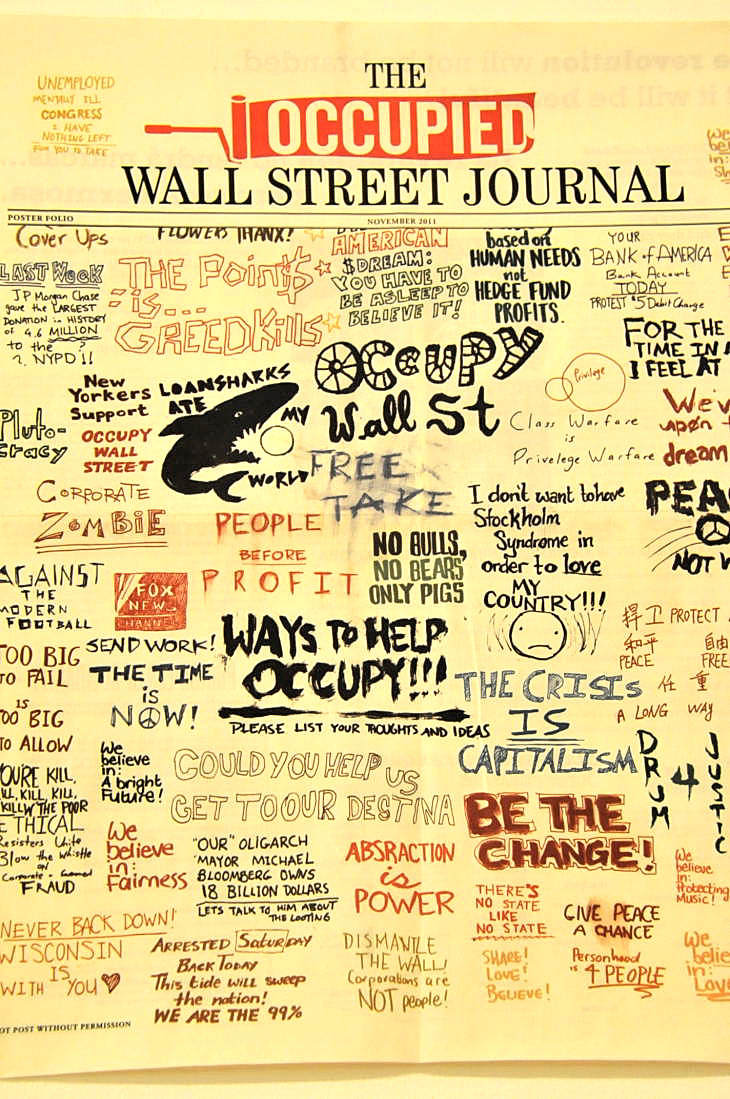 UNEMPLOYED
MENTALLY ILL
CONGRESS
I HAVE
NOTHING LEFT
FOR YOU TO TAKE
THE
OCCUPIED
WALL STREET JOURNAL
POSTER FOLIO
NOVEMBER 2011
Cover Ups
FLOWERS THANX!
AMERICAN
$DREAM:
YOU HAVE TO
BE ASLEEP TO
BELIEVE IT!
based on
HUMAN NEEDS
not
HEDGE FUND
PROFITS.
YOUR
BANK of AMERICA
Bank Account
TODAY
PROTEST $5 Debit Charge
LAST Week
JP Morgan Chase
gave the LARGEST
DONATION in HISTORY
of 4.6 MILLION
to the
NYPD!!
THE Point$
is...
GREED Kills
FOR THE
TIME IN
I FEEL AT
New
Yorkers
Support
OCCUPY
WALL
STREET
LOANSHARKS
ATE
MY
WORLD
OCCUPY
Wall St
Privilege
Class Warfare
is
Privelege Warfare
We'v
upon
dream
Pluto-
cracy
CORPORATE
ZOMBIE
FREE
TAKE
PEOPLE
BEFORE
PROFIT
NO BULLS,
NO BEARS
ONLY PIGS
I don't want to have
Stockholm
Syndrome in
order to love
MY
COUNTRY!!!
PEA
NOT
AGAINST
THE
MODERN
FOOTBALL
FOX
NEWS
CHANNEL
捍卫 PROTECT
和平
PEACE
自由
FREE
任重
A LONG WAY
TOO BIG
TO FAIL
IS
TOO BIG
TO ALLOW
SEND WORK!
THE TIME
is
NOW!
WAYS TO HELP
OCCUPY!!!
PLEASE LIST YOUR THOUGHTS AND IDEAS
THE CRISIS
IS
CAPITALISM
DRUM
4
JUSTIC
YOU'RE KILL,
KILL, KILL, KILL,
KILL THE POOR
We
believe
in:
A bright
Future!
COULD YOU HELP US
GET TO OUR DESTINA
BE THE
CHANGE!
ETHICAL
Resisters Unite
Blow the Whistle
on
Corporate
FRAUD
We
believe
in:
Fairness
"OUR" OLIGARCH
MAYOR MICHAEL
BLOOMBERG OWNS
18 BILLION DOLLARS
LETS TALK TO HIM ABOUT
THE LOOTING
ABSRACTION
is
POWER
THERE'S
NO STATE
LIKE
NO STATE
GIVE PEACE
A CHANCE
We
believe
in:
Protecting
Music!
NEVER BACK DOWN!
WISCONSIN
IS
WITH YOU
ARRESTED Saturday
Back Today
This tide will sweep
the nation!
WE ARE THE 99%
DISMANTLE
THE WALL!
Corporations are
NOT people!
SHARE!
LOVE!
BELIEVE!
Personhood
is 4 PEOPLE
We
believe
in:
Love
OT POST WITHOUT PERMISSION